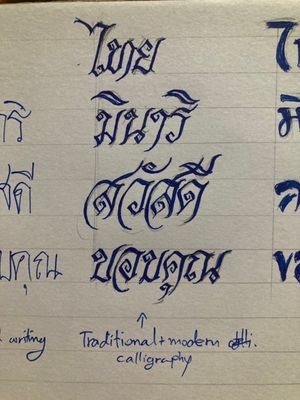 ไทย ไ
าริ มินาริ มิ
สดี สวัสดี ส
บคุณ ขอบคุณ ข
writing Traditional + modern
calligraphy